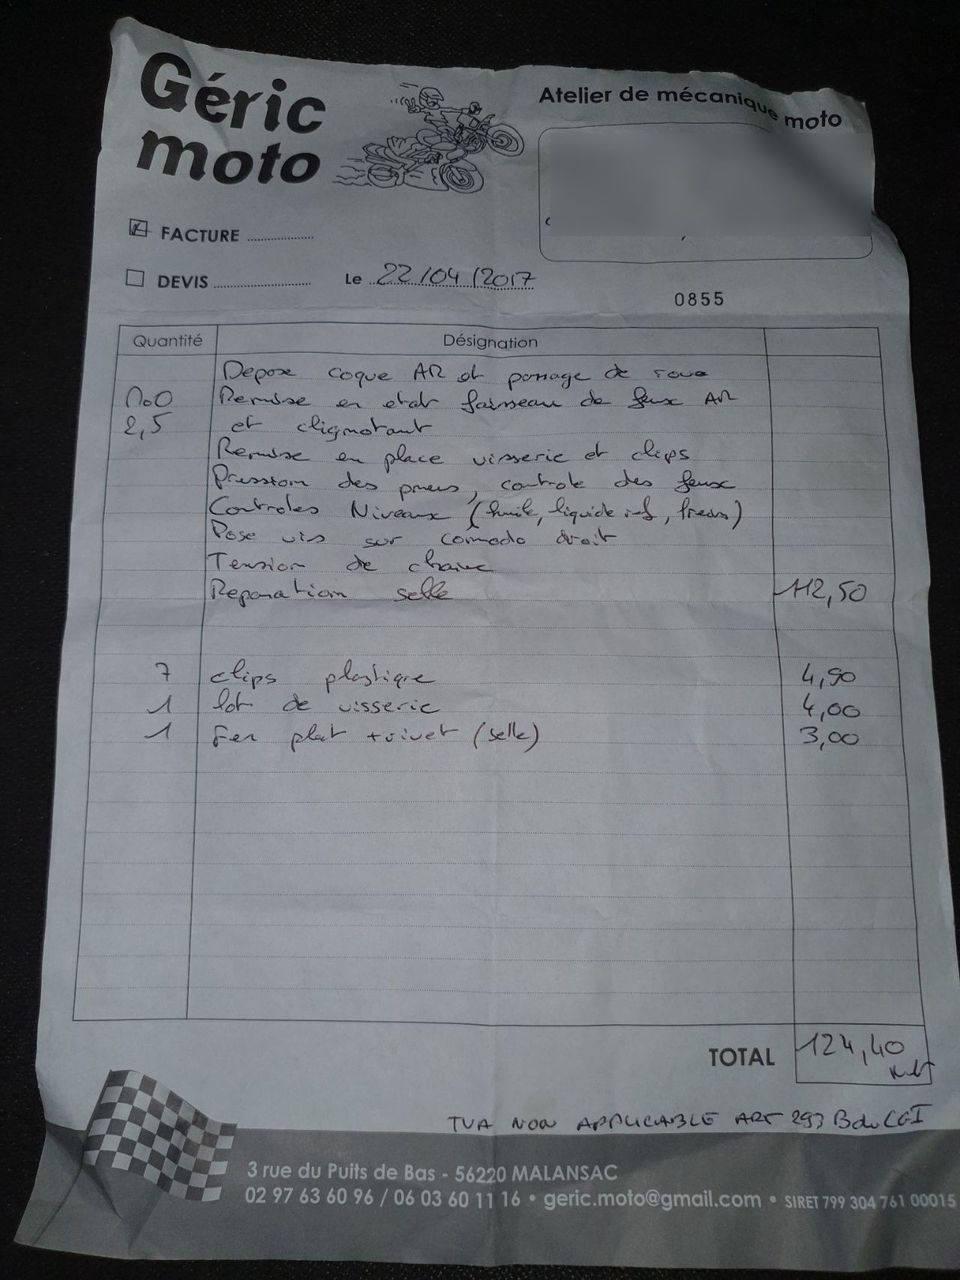 Géric
moto
Atelier de mécanique moto
FACTURE
DEVIS
Le 22/04/2017
0855
Quantité Désignation
Depose coque AR et passage de roue
Remise en etat faisseau de feux AR
2,5 et clignotant
Remise en place visserie et clips
Pression des pneus, controle des feux
Controles Niveaux (huile, liquide ref, freins)
Pose vis sur comodo droit
Tension de chaine
Reparation selle 112,50
7 clips plastique 4,90
1 lot de visserie 4,00
1 Fer plat + rivet (selle) 3,00
TOTAL 124,40
TVA NON APPLICABLE ART 293 B du CGI
3 rue du Puits de Bas - 56220 MALANSAC
02 97 63 60 96 / 06 03 60 11 16 • geric.moto@gmail.com • SIRET 799 304 761 00015